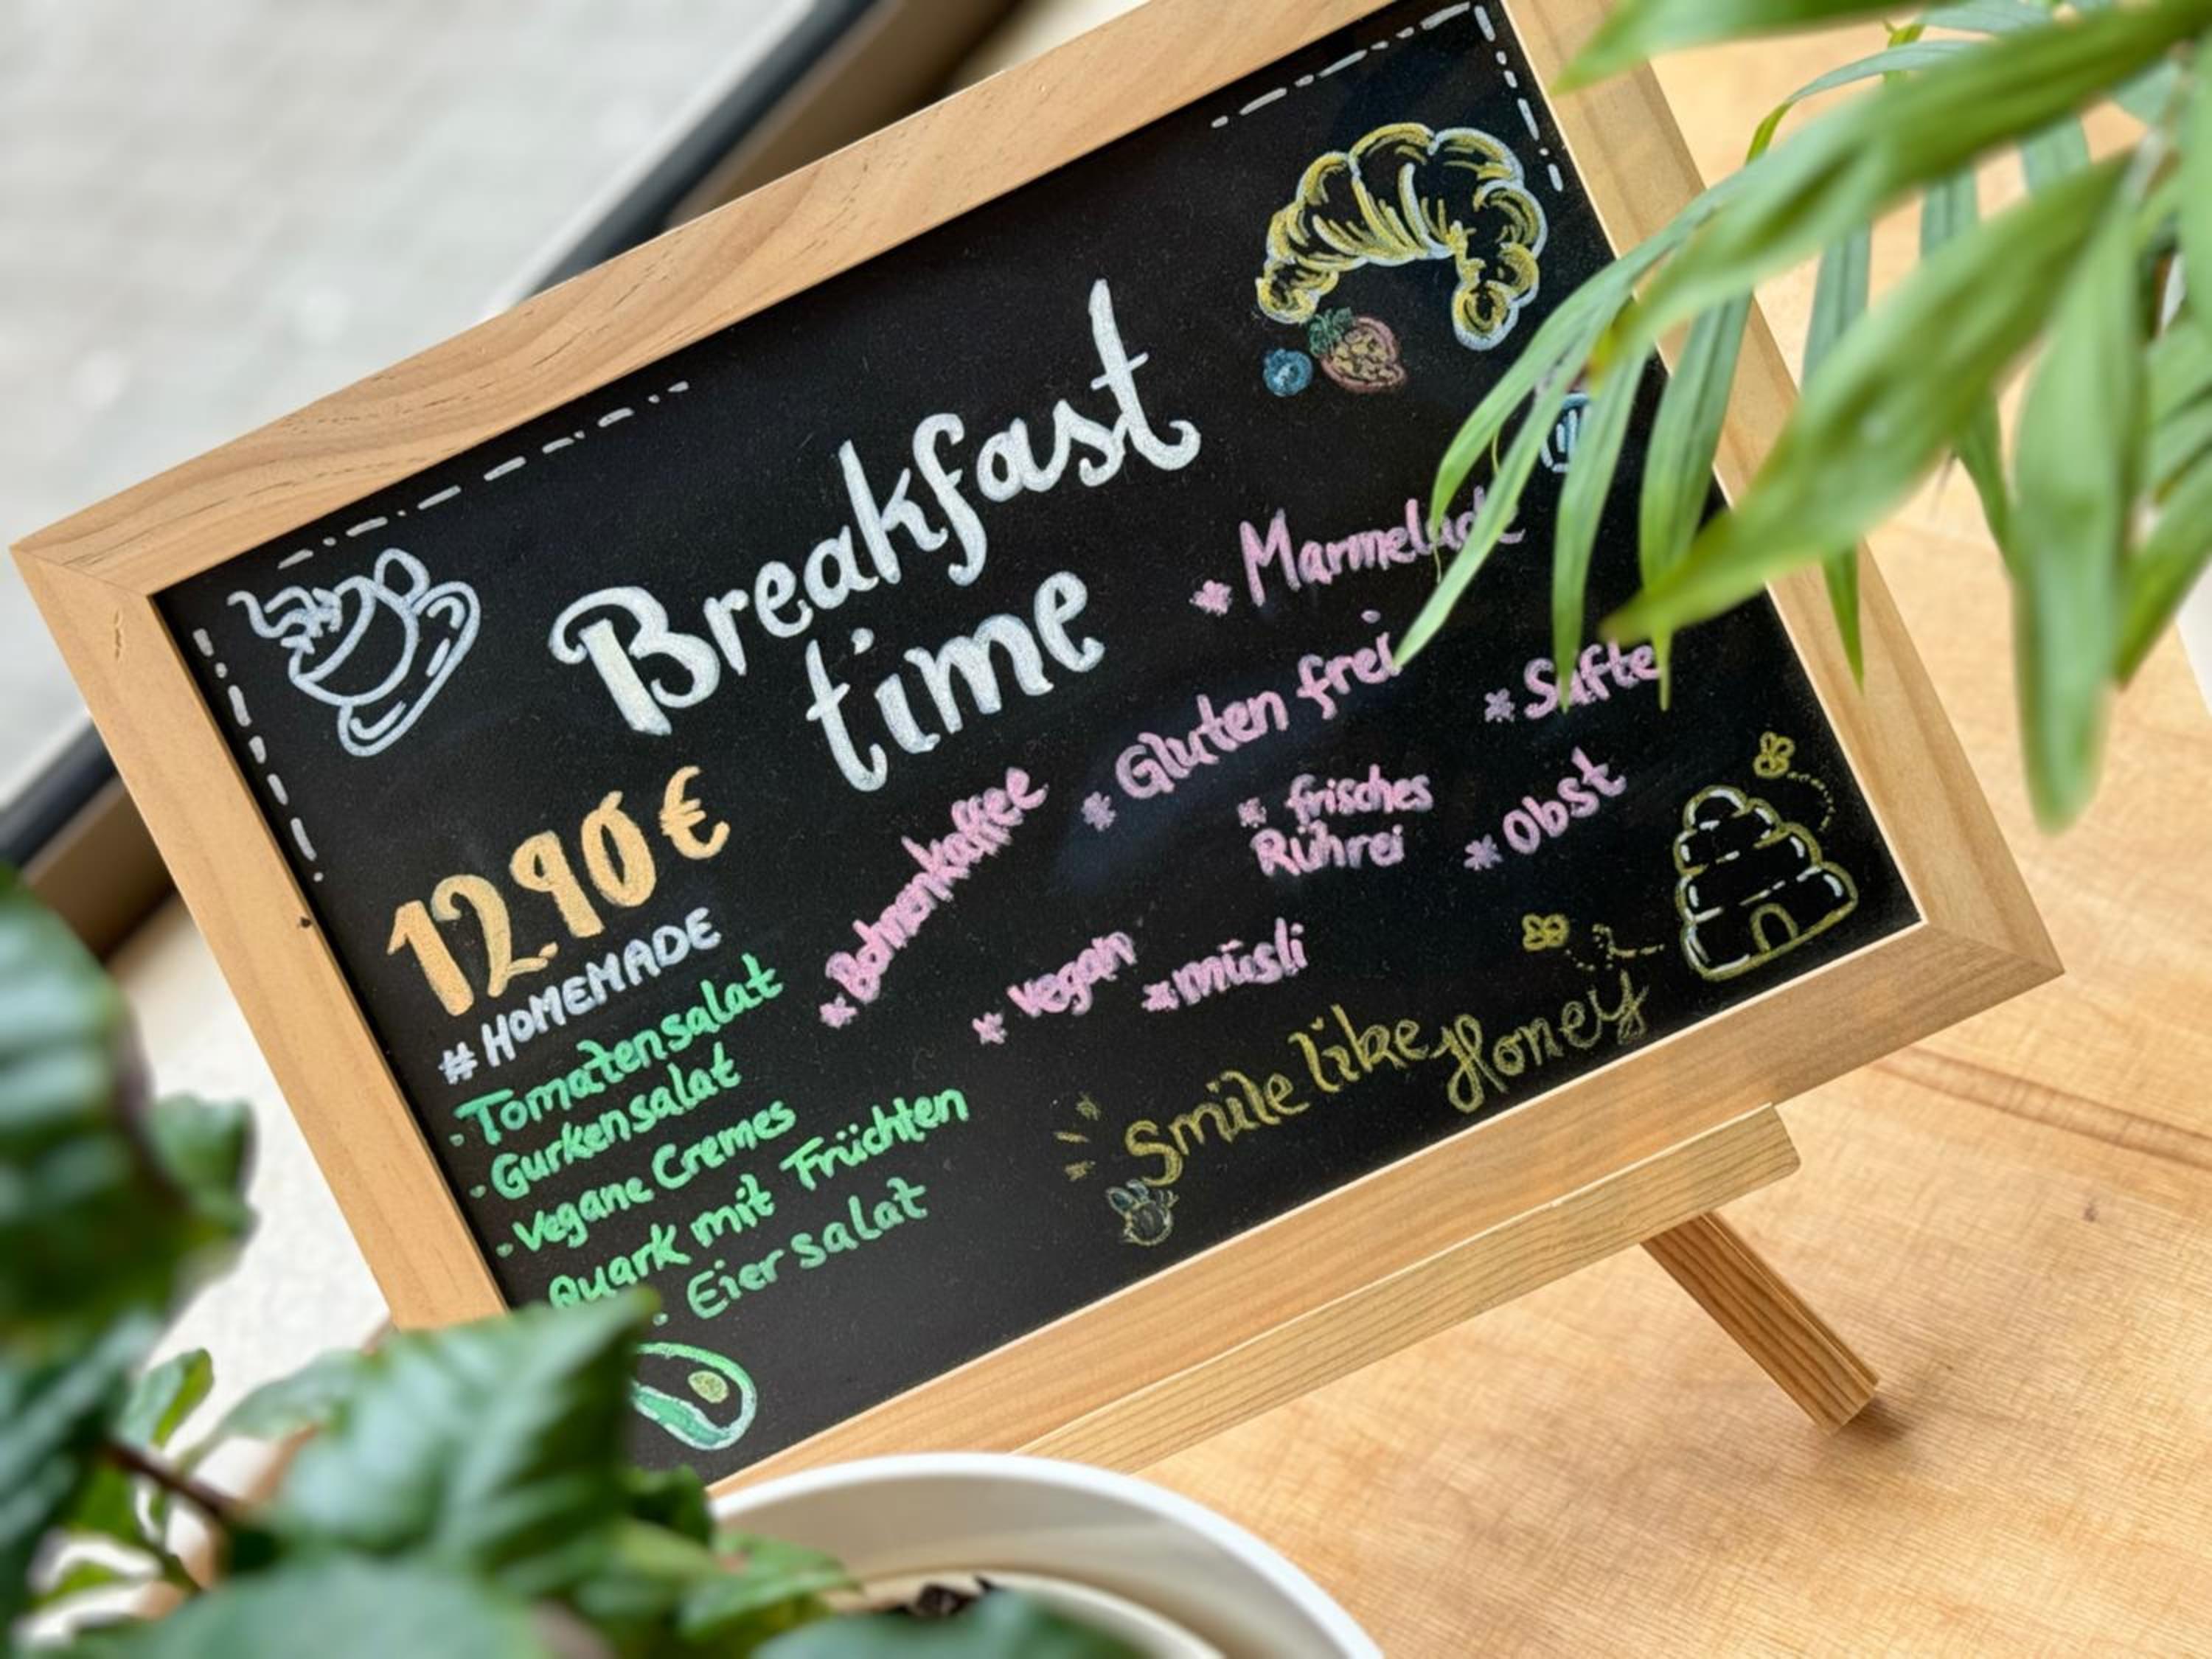 Breakfast
time
1290€
#HOMEMADE
· Tomatensalat
· Gurkensalat
· Vegane Cremes
Quark mit Früchten
· Eiersalat
* Marmelade
* Gluten frei
* Säfte
* Bohnenkaffee
* frisches
Rührei
* Obst
* vegan
* müsli
Smile like Honey